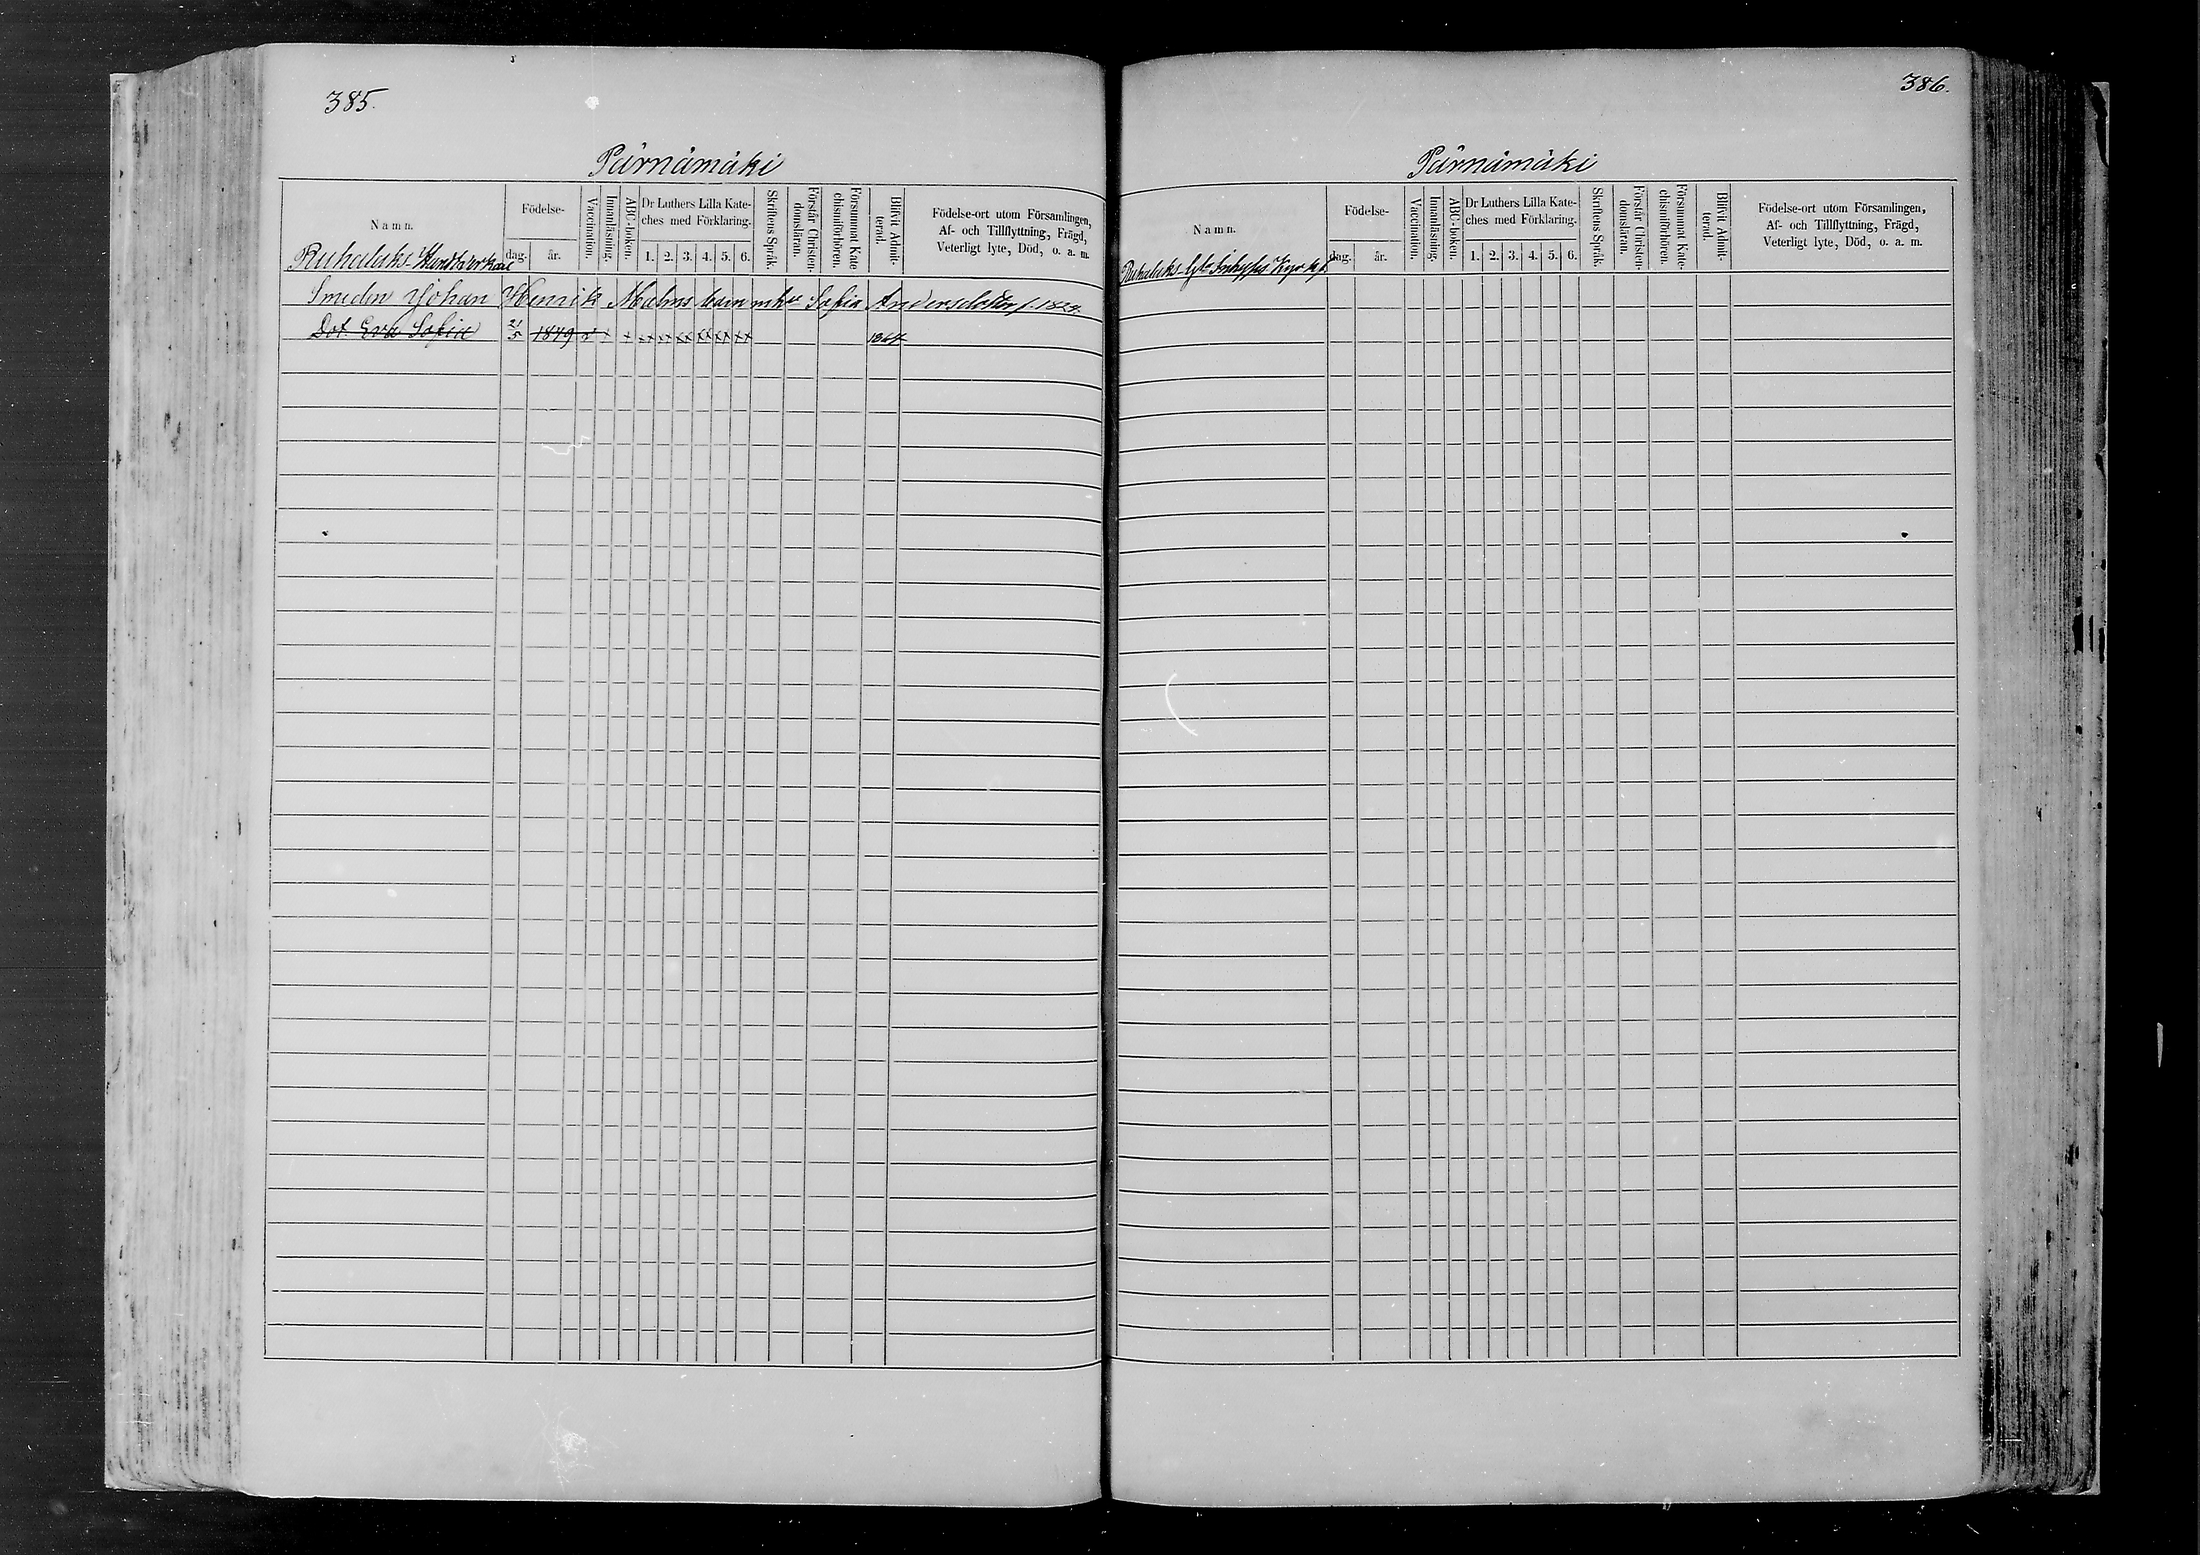 385.
Pärnämäki
Namn.
Födelse-
dag.
år.
Vaccination.
Innanläsning.
ABC-boken.
Dr Luthers Lilla Kate-
ches med Förklaring.
1. 2. 3. 4. 5. 6.
Skriftens Språk.
Förstår Christen-
domsläran.
Försummat Kate
chismiförhören.
Blifvit Admit-
terad.
Födelse-ort utom Församlingen,
Af- och Tillflyttning, Frägd,
Veterligt lyte, Död, o. a. m.
Smeden Johan Henrik Malms barn m h Sofia Andersdotter f. 1824.
Dot. Eva Sofia 21/5 1849 v x x xx xx xx xx xx xx 1864
386.
Pärnämäki
Namn.
Födelse-
dag.
år.
Vaccination.
Innanläsning.
ABC-boken.
Dr Luthers Lilla Kate-
ches med Förklaring.
1. 2. 3. 4. 5. 6.
Skriftens Språk.
Förstår Christen-
domsläran.
Försummat Kate-
chismiförhören.
Blifvit Admit-
terad.
Födelse-ort utom Församlingen,
Af- och Tillflyttning, Frägd,
Veterligt lyte, Död, o. a. m.